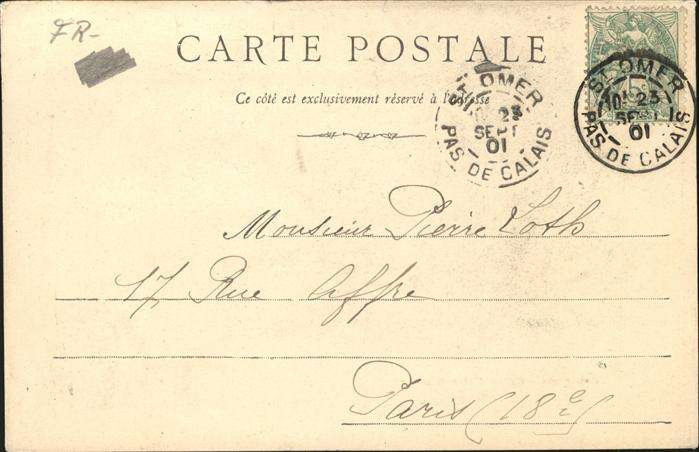 FR-
CARTE POSTALE
Ce côté est exclusivement réservé à l'adresse
ST OMER
23
SEPT
01
PAS DE CALAIS
ST OMER
10 23
SEPT
01
PAS DE CALAIS
Monsieur Pierre Loth
17 Rue Affre
Paris (18e)